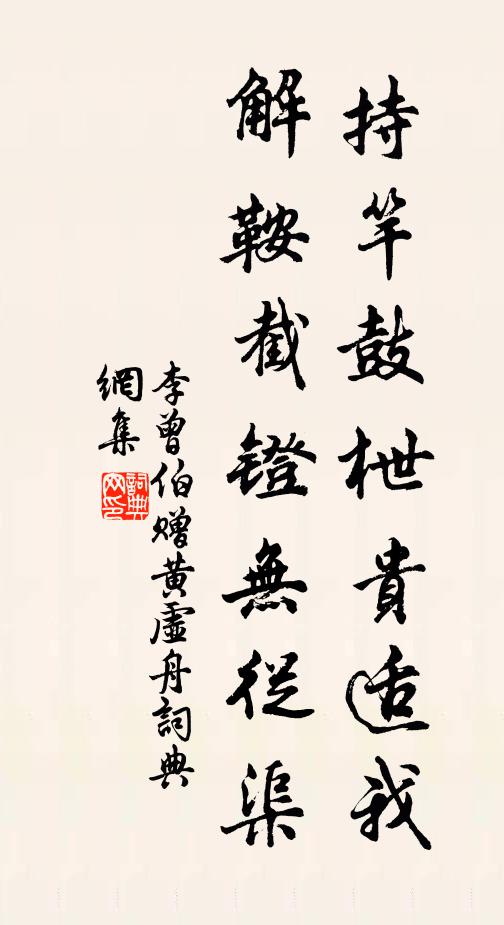 持竿鼓枻貴适我
解鞍截鐙無從渠
李曾伯赠黄虛舟詞典
網集
詞典
网印